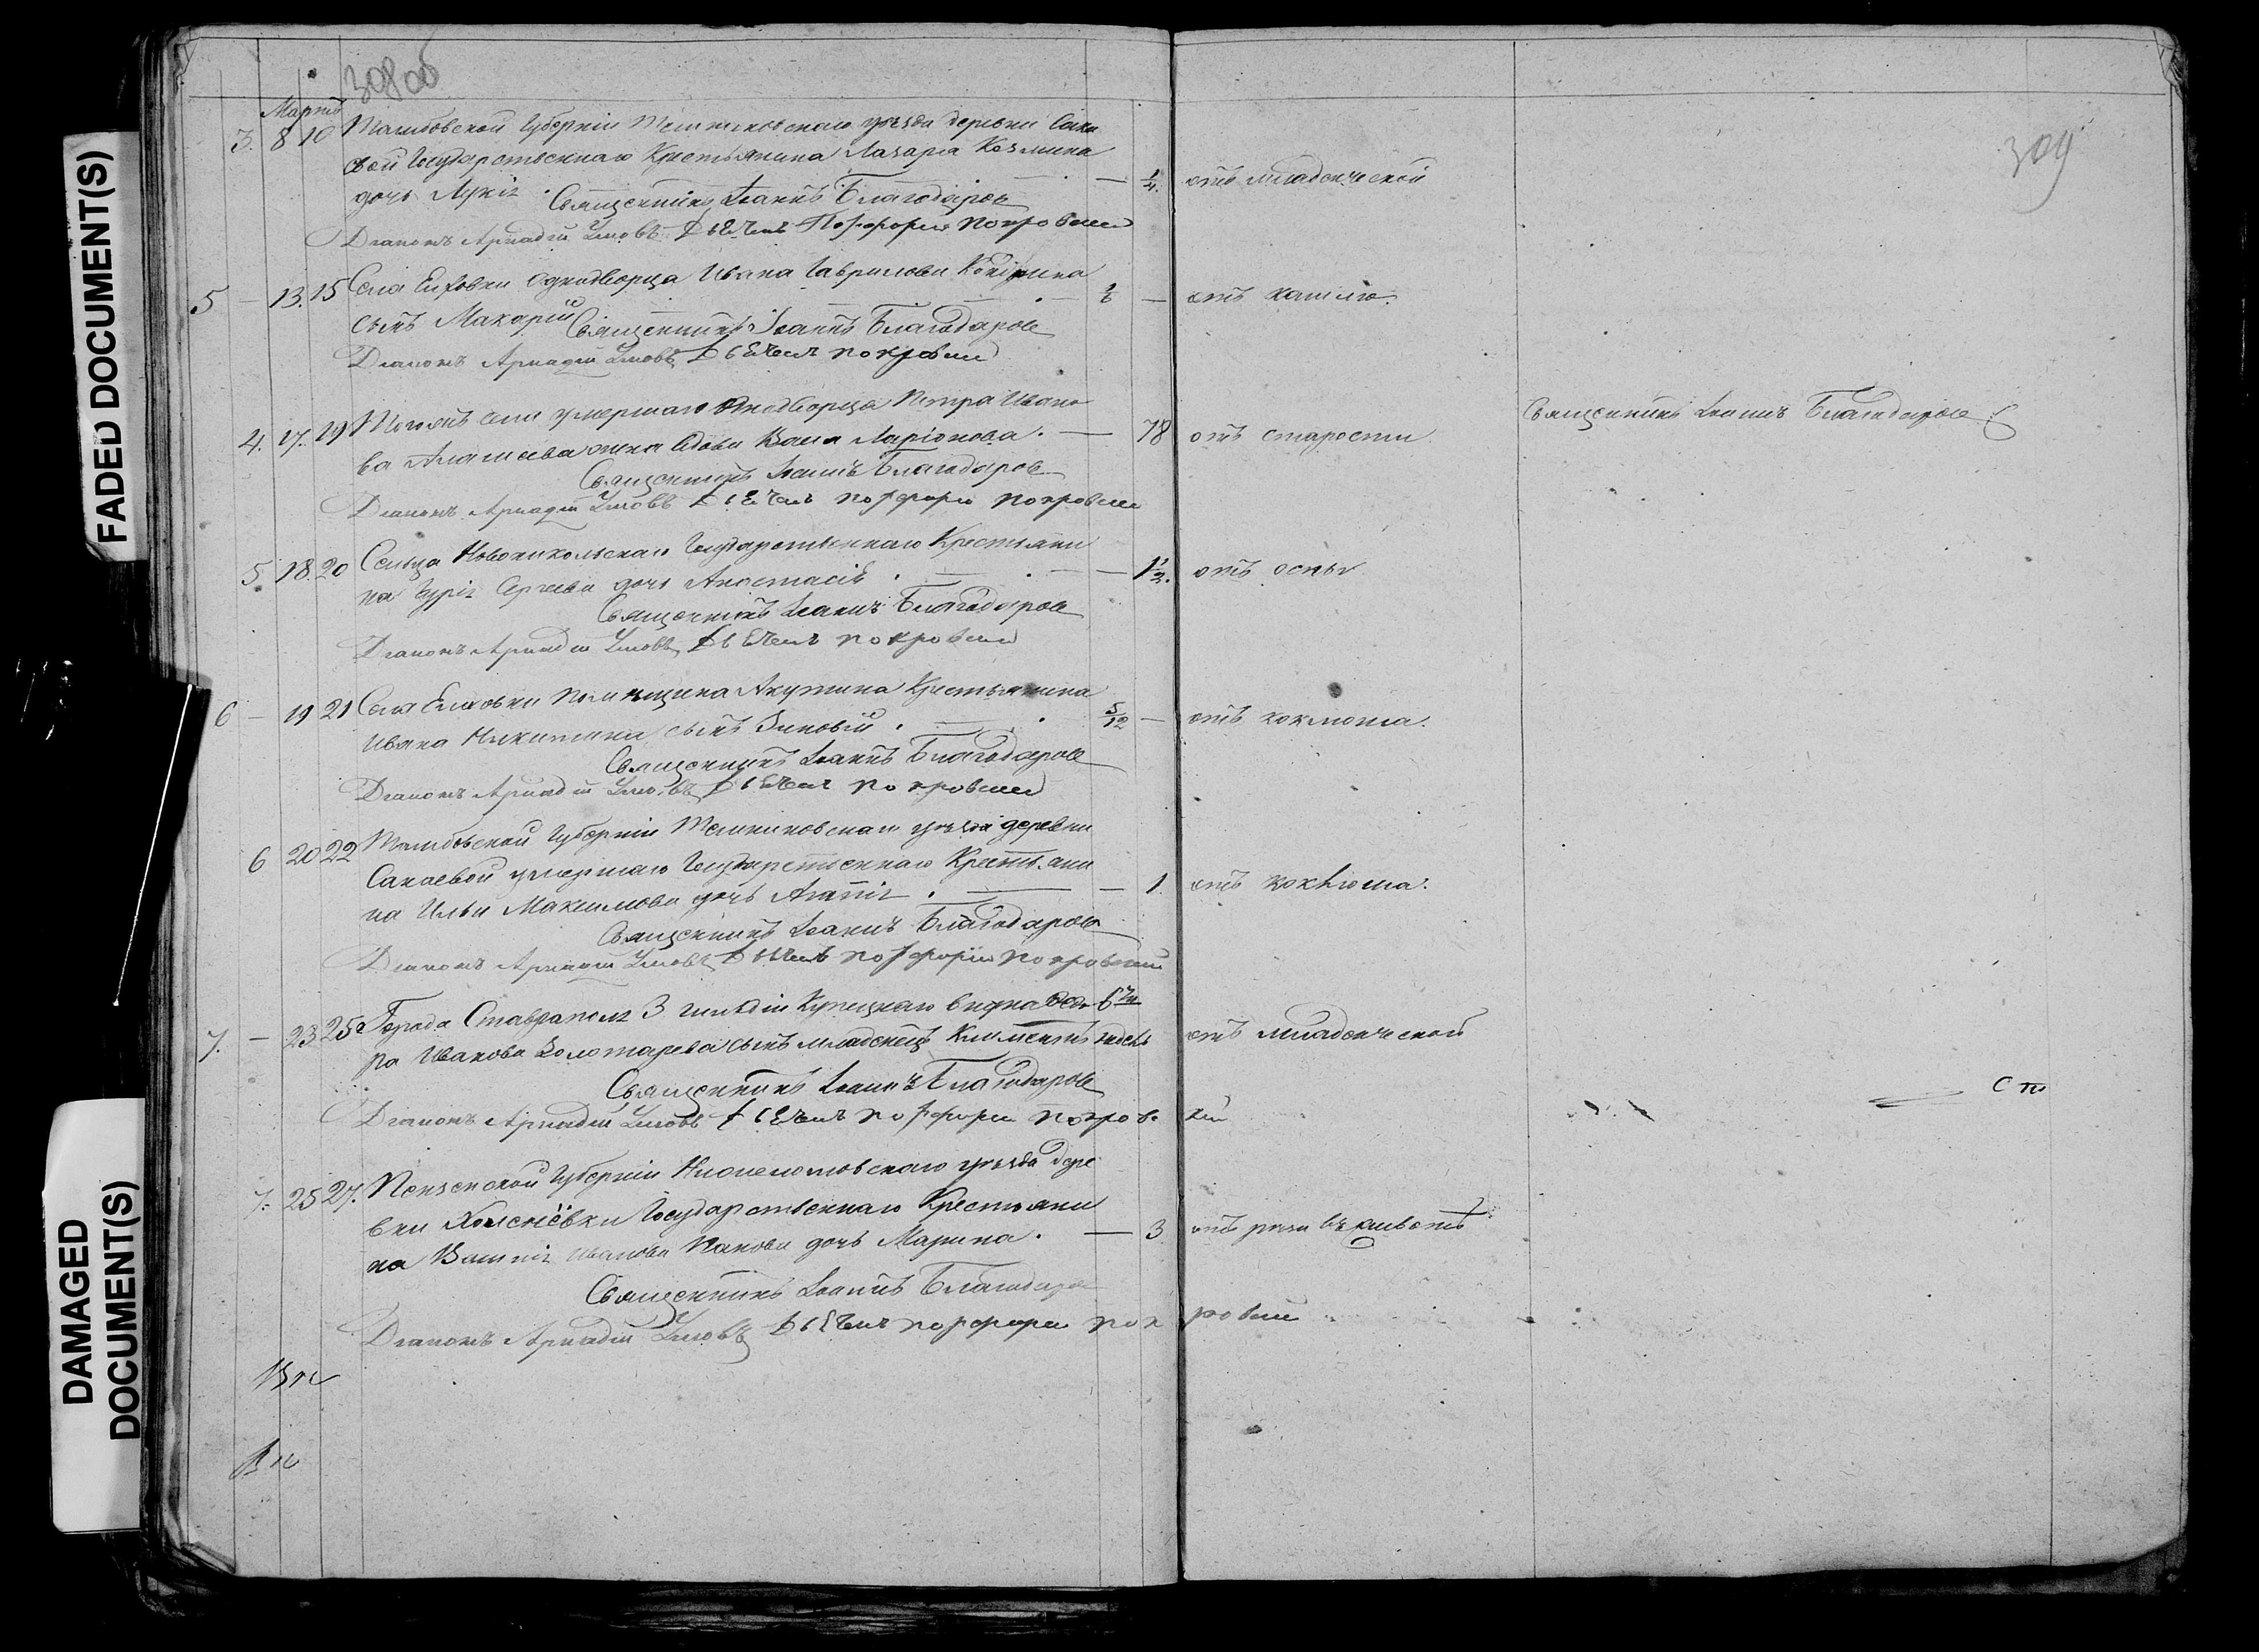 308 об
309
FADED DOCUMENT(S)
DAMAGED
DOCUMENT(S)
Мартъ
3. 8 10 Тамбовской Губерніи Темниковскаго уѣзда деревни Сака
евой Государственнаго Крестьянина Лазаря Козмина
дочь — 1/4. отъ младенческой
Священникъ Іоаннъ Благодаровъ
Діаконъ Аркадій Умовъ Порфирій Покровскій
5 — 13. 15 Села Еховки Однодворца Ивана Гаврилова
сынъ Макарій 1/6 — отъ кашлю.
Священникъ Іоаннъ Благодаровъ
Діаконъ Аркадій Умовъ Покровскій
4. 17. 19 Тогожъ села умершаго Однодворца Петра Ивано
ва жена вдова Ларіонова. — 78 отъ старости
Священникъ Іоаннъ Благодаровъ
Священникъ Іоаннъ Благодаровъ
Діаконъ Аркадій Умовъ Порфирій Покровскій
5. 18. 20 Сельца Новоникольскаго Государственнаго Крестьяни
на Гурія Сергеева дочь Анастасія. — 1 1/2. отъ оспы
Священникъ Іоаннъ Благодаровъ
Діаконъ Аркадій Умовъ Покровскій
6 — 19 21 Села Еховки помѣщика Акутина Крестьянина
Ивана Никитина сынъ Зиновій. 5/12 — отъ коклюша.
Священникъ Іоаннъ Благодаровъ
Діаконъ Аркадій Умовъ Покровскій
6 20 22 Тамбовской Губерніи Темниковскаго уѣзда деревни
Сакаевой умершаго Государственнаго Крестьяни
на Ильи Максимова дочь Агапія. — 1. отъ коклюша.
Священникъ Іоаннъ Благодаровъ
Діаконъ Аркадій Умовъ Порфирій Покровскій
7. — 23 25 Города Ставраполя 3 гильдіи Купецкаго внука Ѳедо
ра Иванова Золотарева сынъ младенецъ Климентъ отъ младенческой
Священникъ Іоаннъ Благодаровъ
Діаконъ Аркадій Умовъ Порфирій Покров кій
Ст
7. 25 27. Пензенской Губерніи Нижнеломовскаго уѣзда дере
вни Государственнаго Крестьяни
на Иванова Панова дочь Марина. — 3 отъ рези въ животѣ
Священникъ Іоаннъ Благодаро
Діаконъ Аркадій Умовъ Порфирій Пок ровскій